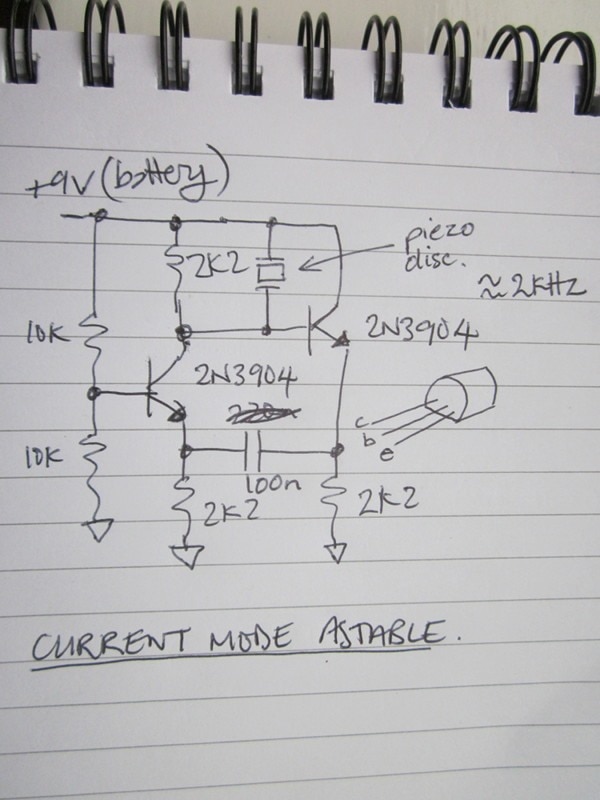 +9V (battery)
piezo
disc.
2K2
≈2KHz
10K
2N3904
2N3904
c
b
e
10K
100n
2K2
2K2
CURRENT MODE ASTABLE.